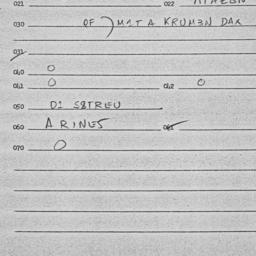 021 022
030 OF ) M1TA KRUM3N DAK
031
040 O
041 O 042 O
050 D1 S8TREU
060 ARINES 065
070 O